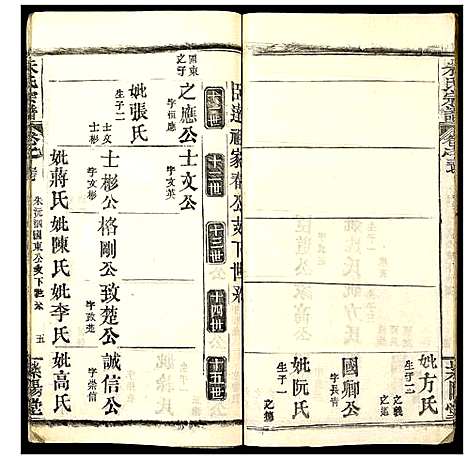 朱氏宗譜
妣方氏
生子二
之義
之德
國卿公
字長清
妣阮氏
生子一
之德
臣達祖家春公支下世系
十一世
十二世
十三世
十四世
十五世
國東
之子
之應公
字恒應
妣張氏
生子二
士文
士彬
士文公
字文英
士彬公
字文彬
妣蔣氏
格剛公
妣陳氏
致楚公
字致楚
妣李氏
誠信公
字崇信
妣高氏
朱氏宗譜
國東公支下世系
五
紫陽堂